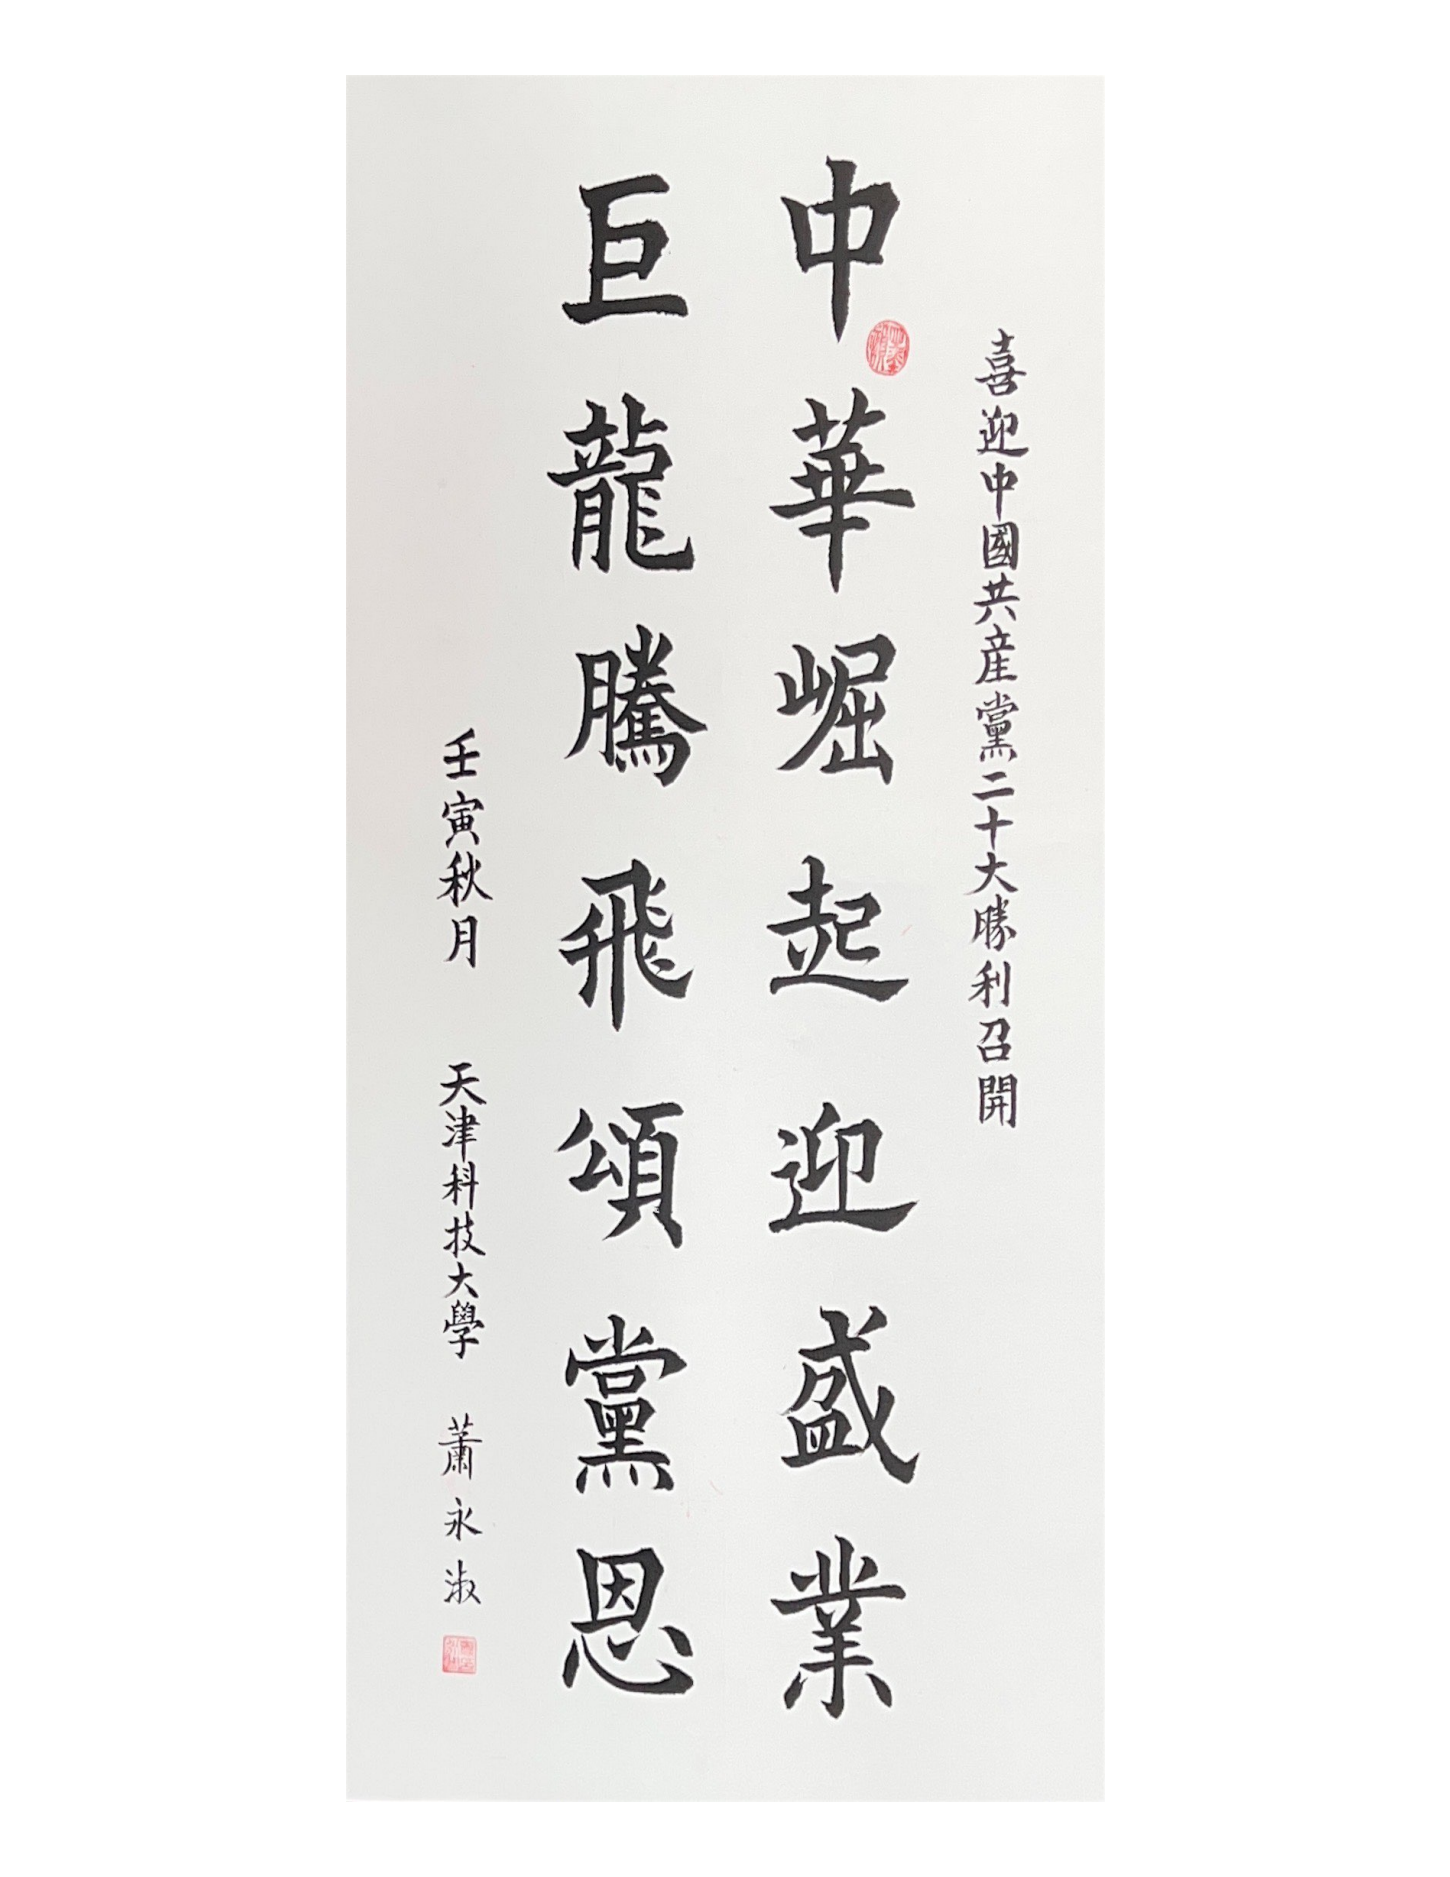 喜迎中國共産黨二十大勝利召開
中華崛起迎盛業
巨龍騰飛頌黨恩
壬寅秋月 天津科技大學 蕭永淑